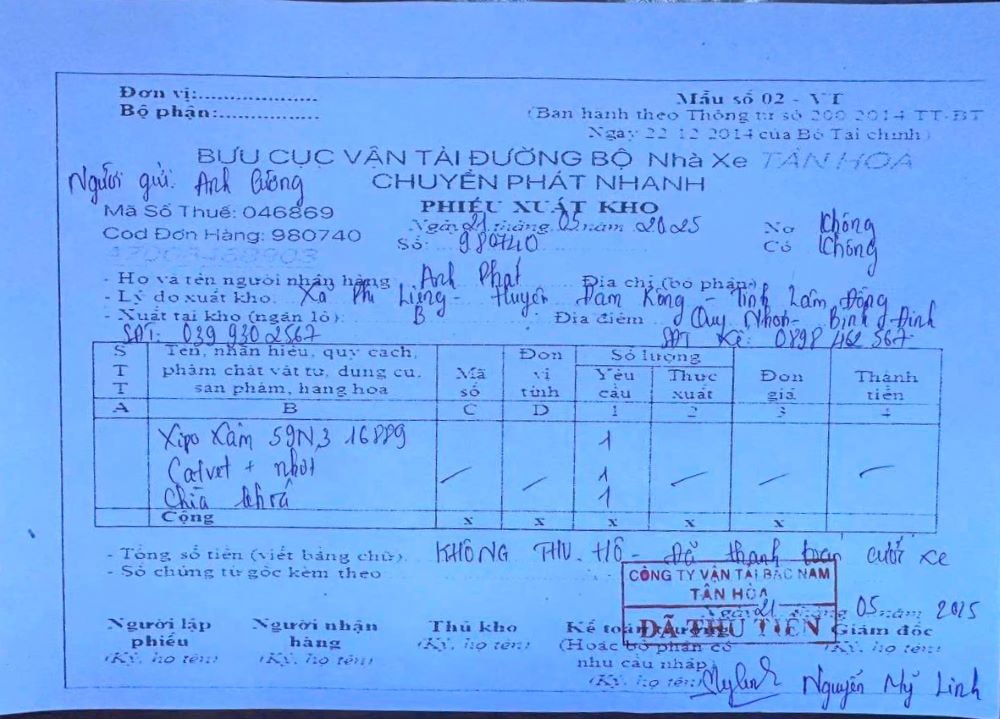 Đơn vị:....................
Bộ phận:.................
Mẫu số 02 - VT
(Ban hành theo Thông tư số 200 2014 TT-BT
Ngày 22 12 2014 của Bộ Tài chính)
BƯU CỤC VẬN TẢI ĐƯỜNG BỘ Nhà Xe TÂN HOA
Người gửi: Anh Cương
CHUYỂN PHÁT NHANH
Mã Số Thuế: 046869
PHIẾU XUẤT KHO
Cod Đơn Hàng: 980740
Ngày 21 tháng 05 năm 2025
Nợ Không
Số: 980740
Có Không
- Họ và tên người nhận hàng Anh Phát Địa chỉ (bộ phận)
- Lý do xuất kho. Xã Phi Liêng - Huyện Đam Rông - Tỉnh Lâm Đồng
- Xuất tại kho (ngăn lô) B Địa điểm Quy Nhơn - Bình Định
SĐT: 039 930 2567 SĐT Xe: 0898 462 567
STT Tên, nhãn hiệu, quy cách, phẩm chất vật tư, dụng cụ, sản phẩm, hàng hoá Mã số Đơn vị tính Số lượng Yêu cầu Thực xuất Đơn giá Thành tiền
A B C D 1 2 3 4
Xipo Xám 59N3 16889 1
Cavet + nhớt 1
Chìa khoá 1
Cộng x x x x x
- Tổng số tiền (viết bằng chữ). KHÔNG THU HỘ - Đã thanh toán cước xe
- Số chứng từ gốc kèm theo
CÔNG TY VẬN TẢI BẮC NAM
TÂN HOA
ĐÃ THU TIỀN
Ngày 21 tháng 05 năm 2025
Người lập phiếu
(Ký, họ tên)
Người nhận hàng
(Ký, họ tên)
Thủ kho
(Ký, họ tên)
Kế toán trưởng
(Hoặc bộ phận có
nhu cầu nhập)
(Ký, họ tên)
Giám đốc
(Ký, họ tên)
Mylinh Nguyễn Mỹ Linh